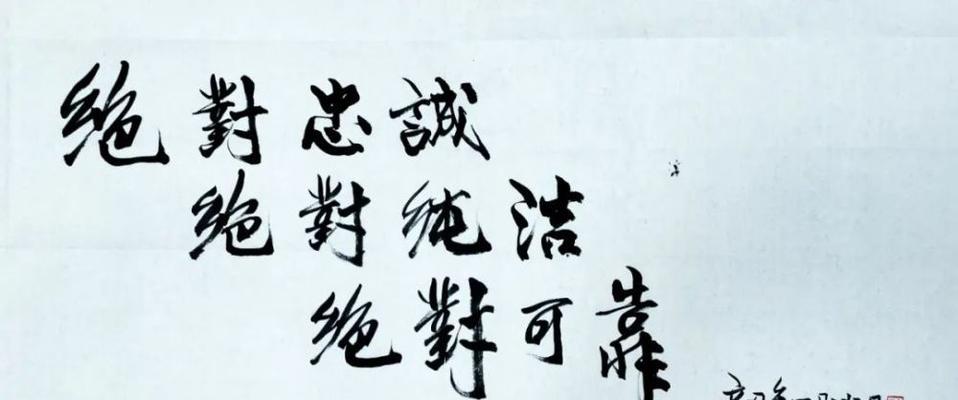 绝對忠誠
绝對純洁
绝對可靠